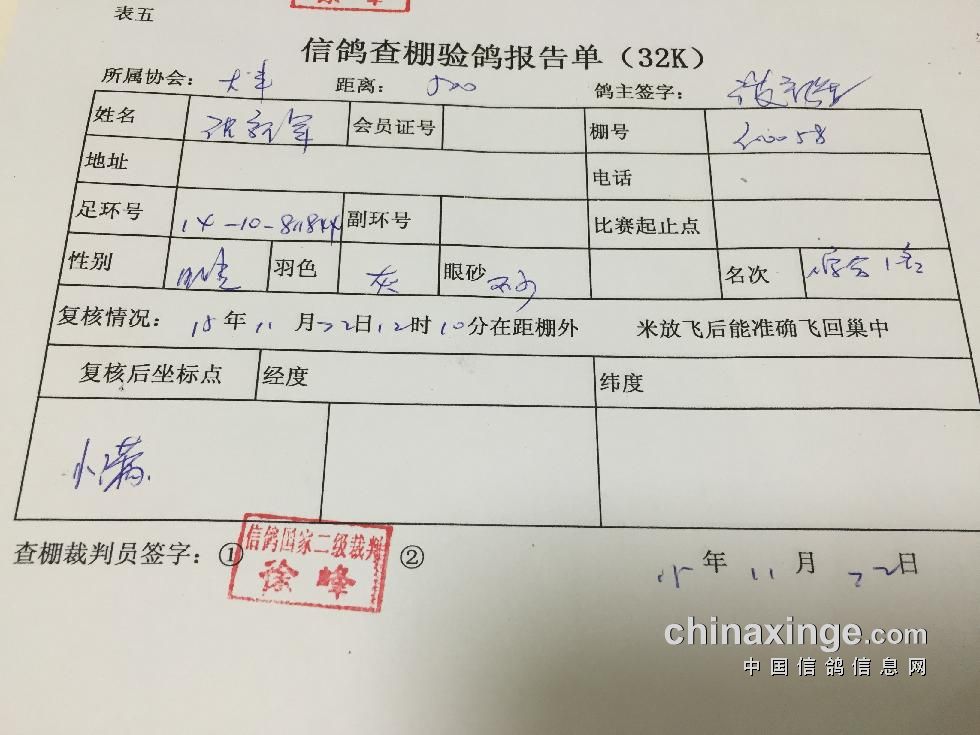 表五
信鸽查棚验鸽报告单（32K）
所属协会： 大丰 距离： 500 鸽主签字：
姓名 会员证号 棚号
地址 电话
足环号 副环号 比赛起止点
性别 羽色 灰 眼砂 名次
复核情况： 15年11月22日12时10分在距棚外 米放飞后能准确飞回巢中
复核后坐标点 经度 纬度
小满
查棚裁判员签字：① 信鸽国家二级裁判 徐峰 ②
15年11月22日
chinaxinge.com
中国信鸽信息网